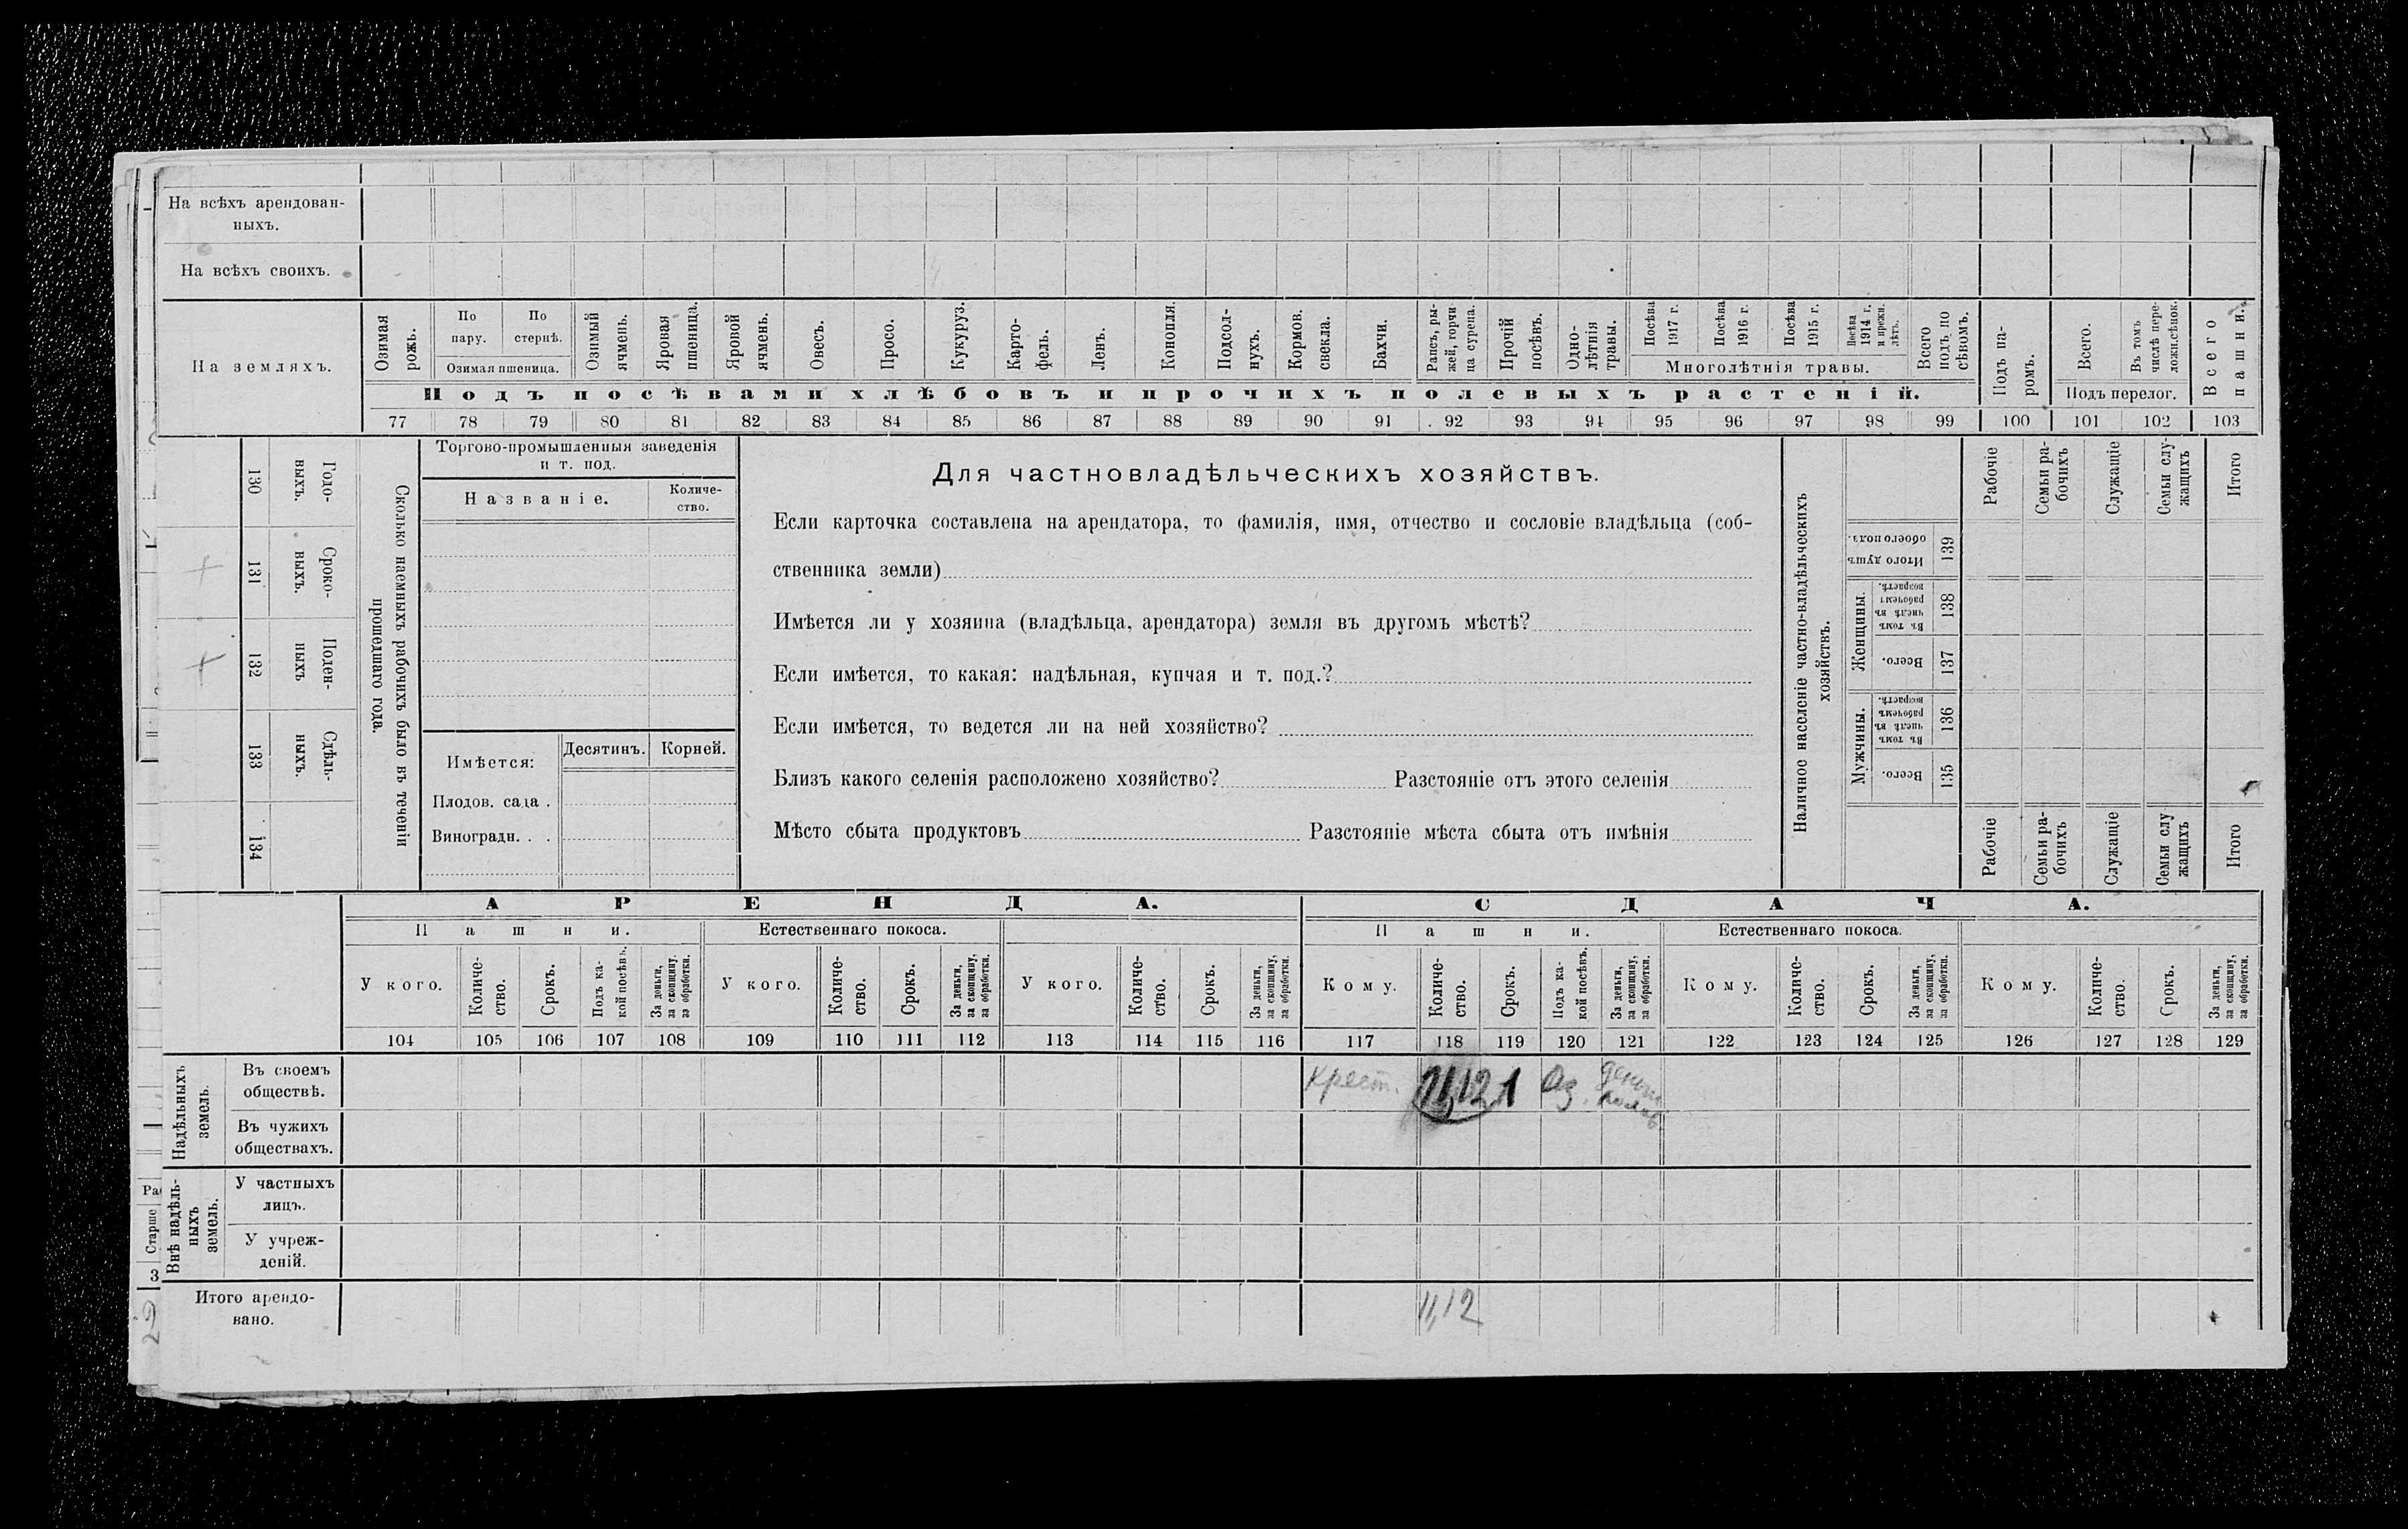 На всѣхъ арендован-
ныхъ.
На всѣхъ своихъ.
На земляхъ.
Озимая рожь.
По пару.
По стернѣ.
Озимая пшеница.
Озимый ячмень.
Яровая пшеница.
Яровой ячмень.
Овесъ.
Просо.
Кукуруз.
Карто-
фель.
Ленъ.
Конопля.
Подсол-
нухъ.
Кормов. свекла.
Бахчи.
Рапсъ, ры-
жей, горчи
ца сурепа.
Прочій посѣвъ.
Одно-
лѣтнія
травы.
Посѣва 1917 г.
Посѣва 1916 г.
Посѣва 1915 г.
Посѣва 1914 г. и прежн. лѣтъ.
Многолѣтнія травы.
Всего подъ по
сѣвомъ.
Подъ посѣвами хлѣбовъ и прочихъ полевыхъ растеній.
Подъ па-
ромъ.
Всего.
Въ томъ числѣ пере-
ложн.сѣнок.
Подъ перелог.
Всего пашни.
77 78 79 80 81 82 83 84 85 86 87 88 89 90 91 92 93 94 95 96 97 98 99 100 101 102 103
130
Годо-
выхъ.
131
Сроко-
выхъ.
132
Поден-
ныхъ
133
Сдѣль-
ныхъ.
134
Сколько наемныхъ рабочихъ было въ теченіи
прошедшаго года.
Торгово-промышленныя заведенія
и т. под.
Названіе.
Количе-
ство.
Имѣется:
Десятинъ.
Корней.
Плодов. сада .
Виноградн. . .
Для частновладѣльческихъ хозяйствъ.
Если карточка составлена на арендатора, то фамилія, имя, отчество и сословіе владѣльца (соб-
ственника земли)
Имѣется ли у хозяина (владѣльца, арендатора) земля въ другомъ мѣстѣ?
Если имѣется, то какая: надѣльная, купчая и т. под.?
Если имѣется, то ведется ли на ней хозяйство?
Близъ какого селенія расположено хозяйство? Разстояніе отъ этого селенія
Мѣсто сбыта продуктовъ Разстояніе мѣста сбыта отъ имѣнія
Наличное населеніе частно-владѣльческихъ
хозяйствъ.
Рабочіе
Семьи ра-
бочихъ
Служащіе
Семьи слу
жащихъ
Итого
Итого душъ
обоего пола.
139
Женщины.
Въ томъ
числѣ въ
рабочемъ
возрастѣ.
138
Всего.
137
Мужчины.
Въ томъ
числѣ въ
рабочемъ
возрастѣ.
136
Всего.
135
Рабочіе
Семьи ра-
бочихъ
Служащіе
Семьи слу
жащихъ
Итого
АРЕНДА.
СДАЧА.
Пашни.
Естественнаго покоса.
Пашни.
Естественнаго покоса.
У кого.
Количе-
ство.
Срокъ.
Подъ ка-
кой посѣвъ.
За деньги,
за скопщину,
за обработки.
У кого.
Количе-
ство.
Срокъ.
За деньги,
за скопщину,
за обработки.
У кого.
Количе-
ство.
Срокъ.
За деньги,
за скопщину,
за обработки.
Кому.
Количе-
ство.
Срокъ.
Подъ ка-
кой посѣвъ.
За деньги,
за скопщину,
за обработки.
Кому.
Количе-
ство.
Срокъ.
За деньги,
за скопщину,
за обработки.
Кому.
Количе-
ство.
Срокъ.
За деньги,
за скопщину,
за обработки.
104 105 106 107 108 109 110 111 112 113 114 115 116 117 118 119 120 121 122 123 124 125 126 127 128 129
Надѣльныхъ
земель.
Въ своемъ
обществѣ.
Крест. 11,12 1 Оз.
Въ чужихъ
обществахъ.
Внѣ надѣль-
ныхъ
земель.
У частныхъ
лицъ.
У учреж-
деній.
Итого арендо-
вано.
11,12
Старше
3
29